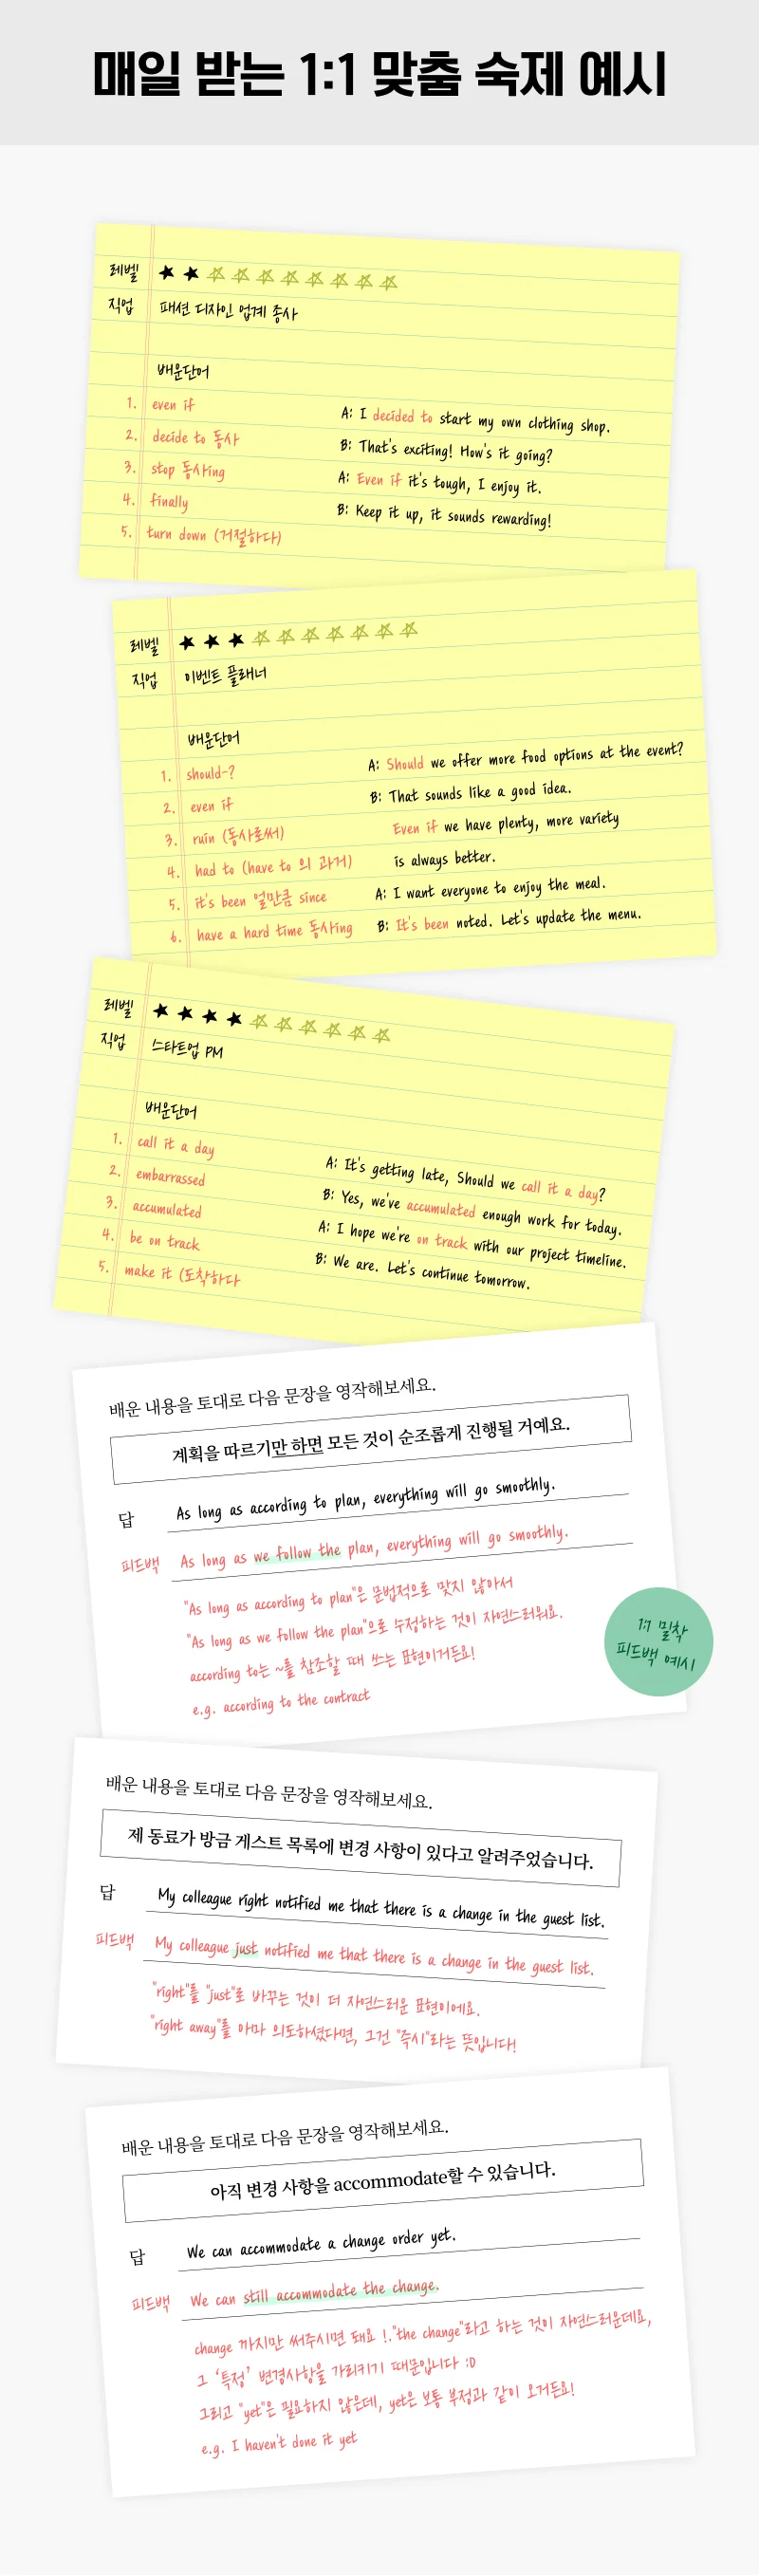 매일 받는 1:1 맞춤 숙제 예시
레벨 ★★☆☆☆☆☆☆☆☆
직업 패션 디자인 업계 종사
배운단어
1. even if
2. decide to 동사
3. stop 동사ing
4. finally
5. turn down (거절하다)
A: I decided to start my own clothing shop.
B: That's exciting! How's it going?
A: Even if it's tough, I enjoy it.
B: Keep it up, it sounds rewarding!
레벨 ★★★☆☆☆☆☆☆☆
직업 이벤트 플래너
배운단어
1. should~?
2. even if
3. ruin (동사로써)
4. had to (have to 의 과거)
5. it's been 얼만큼 since
6. have a hard time 동사ing
A: Should we offer more food options at the event?
B: That sounds like a good idea.
Even if we have plenty, more variety
is always better.
A: I want everyone to enjoy the meal.
B: It's been noted. Let's update the menu.
레벨 ★★★★☆☆☆☆☆☆
직업 스타트업 PM
배운단어
1. call it a day
2. embarrassed
3. accumulated
4. be on track
5. make it (도착하다
A: It's getting late, Should we call it a day?
B: Yes, we've accumulated enough work for today.
A: I hope we're on track with our project timeline.
B: We are. Let's continue tomorrow.
배운 내용을 토대로 다음 문장을 영작해보세요.
계획을 따르기만 하면 모든 것이 순조롭게 진행될 거예요.
답 As long as according to plan, everything will go smoothly.
피드백 As long as we follow the plan, everything will go smoothly.
"As long as according to plan"은 문법적으로 맞지 않아서
"As long as we follow the plan"으로 수정하는 것이 자연스러워요.
according to는 ~를 참조할 때 쓰는 표현이거든요!
e.g. according to the contract
1:1 밀착
피드백 예시
배운 내용을 토대로 다음 문장을 영작해보세요.
제 동료가 방금 게스트 목록에 변경 사항이 있다고 알려주었습니다.
답 My colleague right notified me that there is a change in the guest list.
피드백 My colleague just notified me that there is a change in the guest list.
"right"를 "just"로 바꾸는 것이 더 자연스러운 표현이에요.
"right away"를 아마 의도하셨다면, 그건 "즉시"라는 뜻입니다!
배운 내용을 토대로 다음 문장을 영작해보세요.
아직 변경 사항을 accommodate할 수 있습니다.
답 We can accommodate a change order yet.
피드백 We can still accommodate the change.
change 까지만 써주시면 돼요 !."the change"라고 하는 것이 자연스러운데요,
그 '특정' 변경사항을 가리키기 때문입니다 :D
그리고 "yet"은 필요하지 않은데, yet은 보통 부정과 같이 오거든요!
e.g. I haven't done it yet